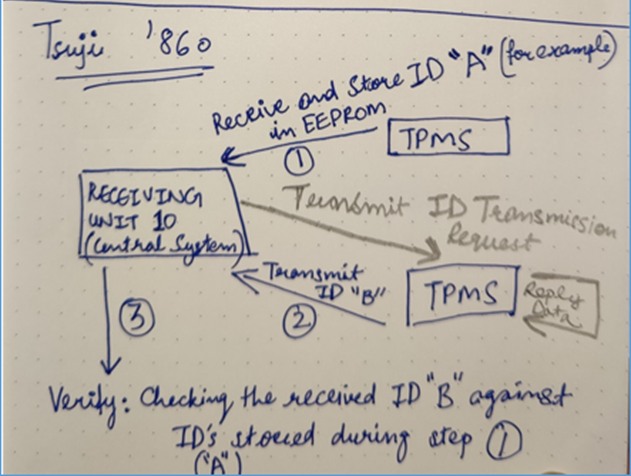 Tsuji '860
Receive and Store ID "A" (for example)
in EEPROM
①
TPMS
RECEIVING
UNIT 10
(Central System)
Transmit ID Transmission
Request
Transmit
ID "B"
②
TPMS
Reply
Data
③
Verify: Checking the received ID "B" against
ID's stored during step ①
("A")